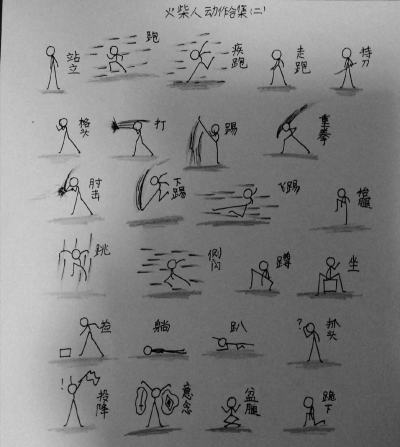 火柴人动作合集(二)
站立 跑 疾跑 走跑 持刀
格头 打 踢 重拳
肘击 下踢 飞踢
跳 侧闪 蹲 坐
捡 躺 趴 抓头
! ?
投降 意念 盆腿 跪下